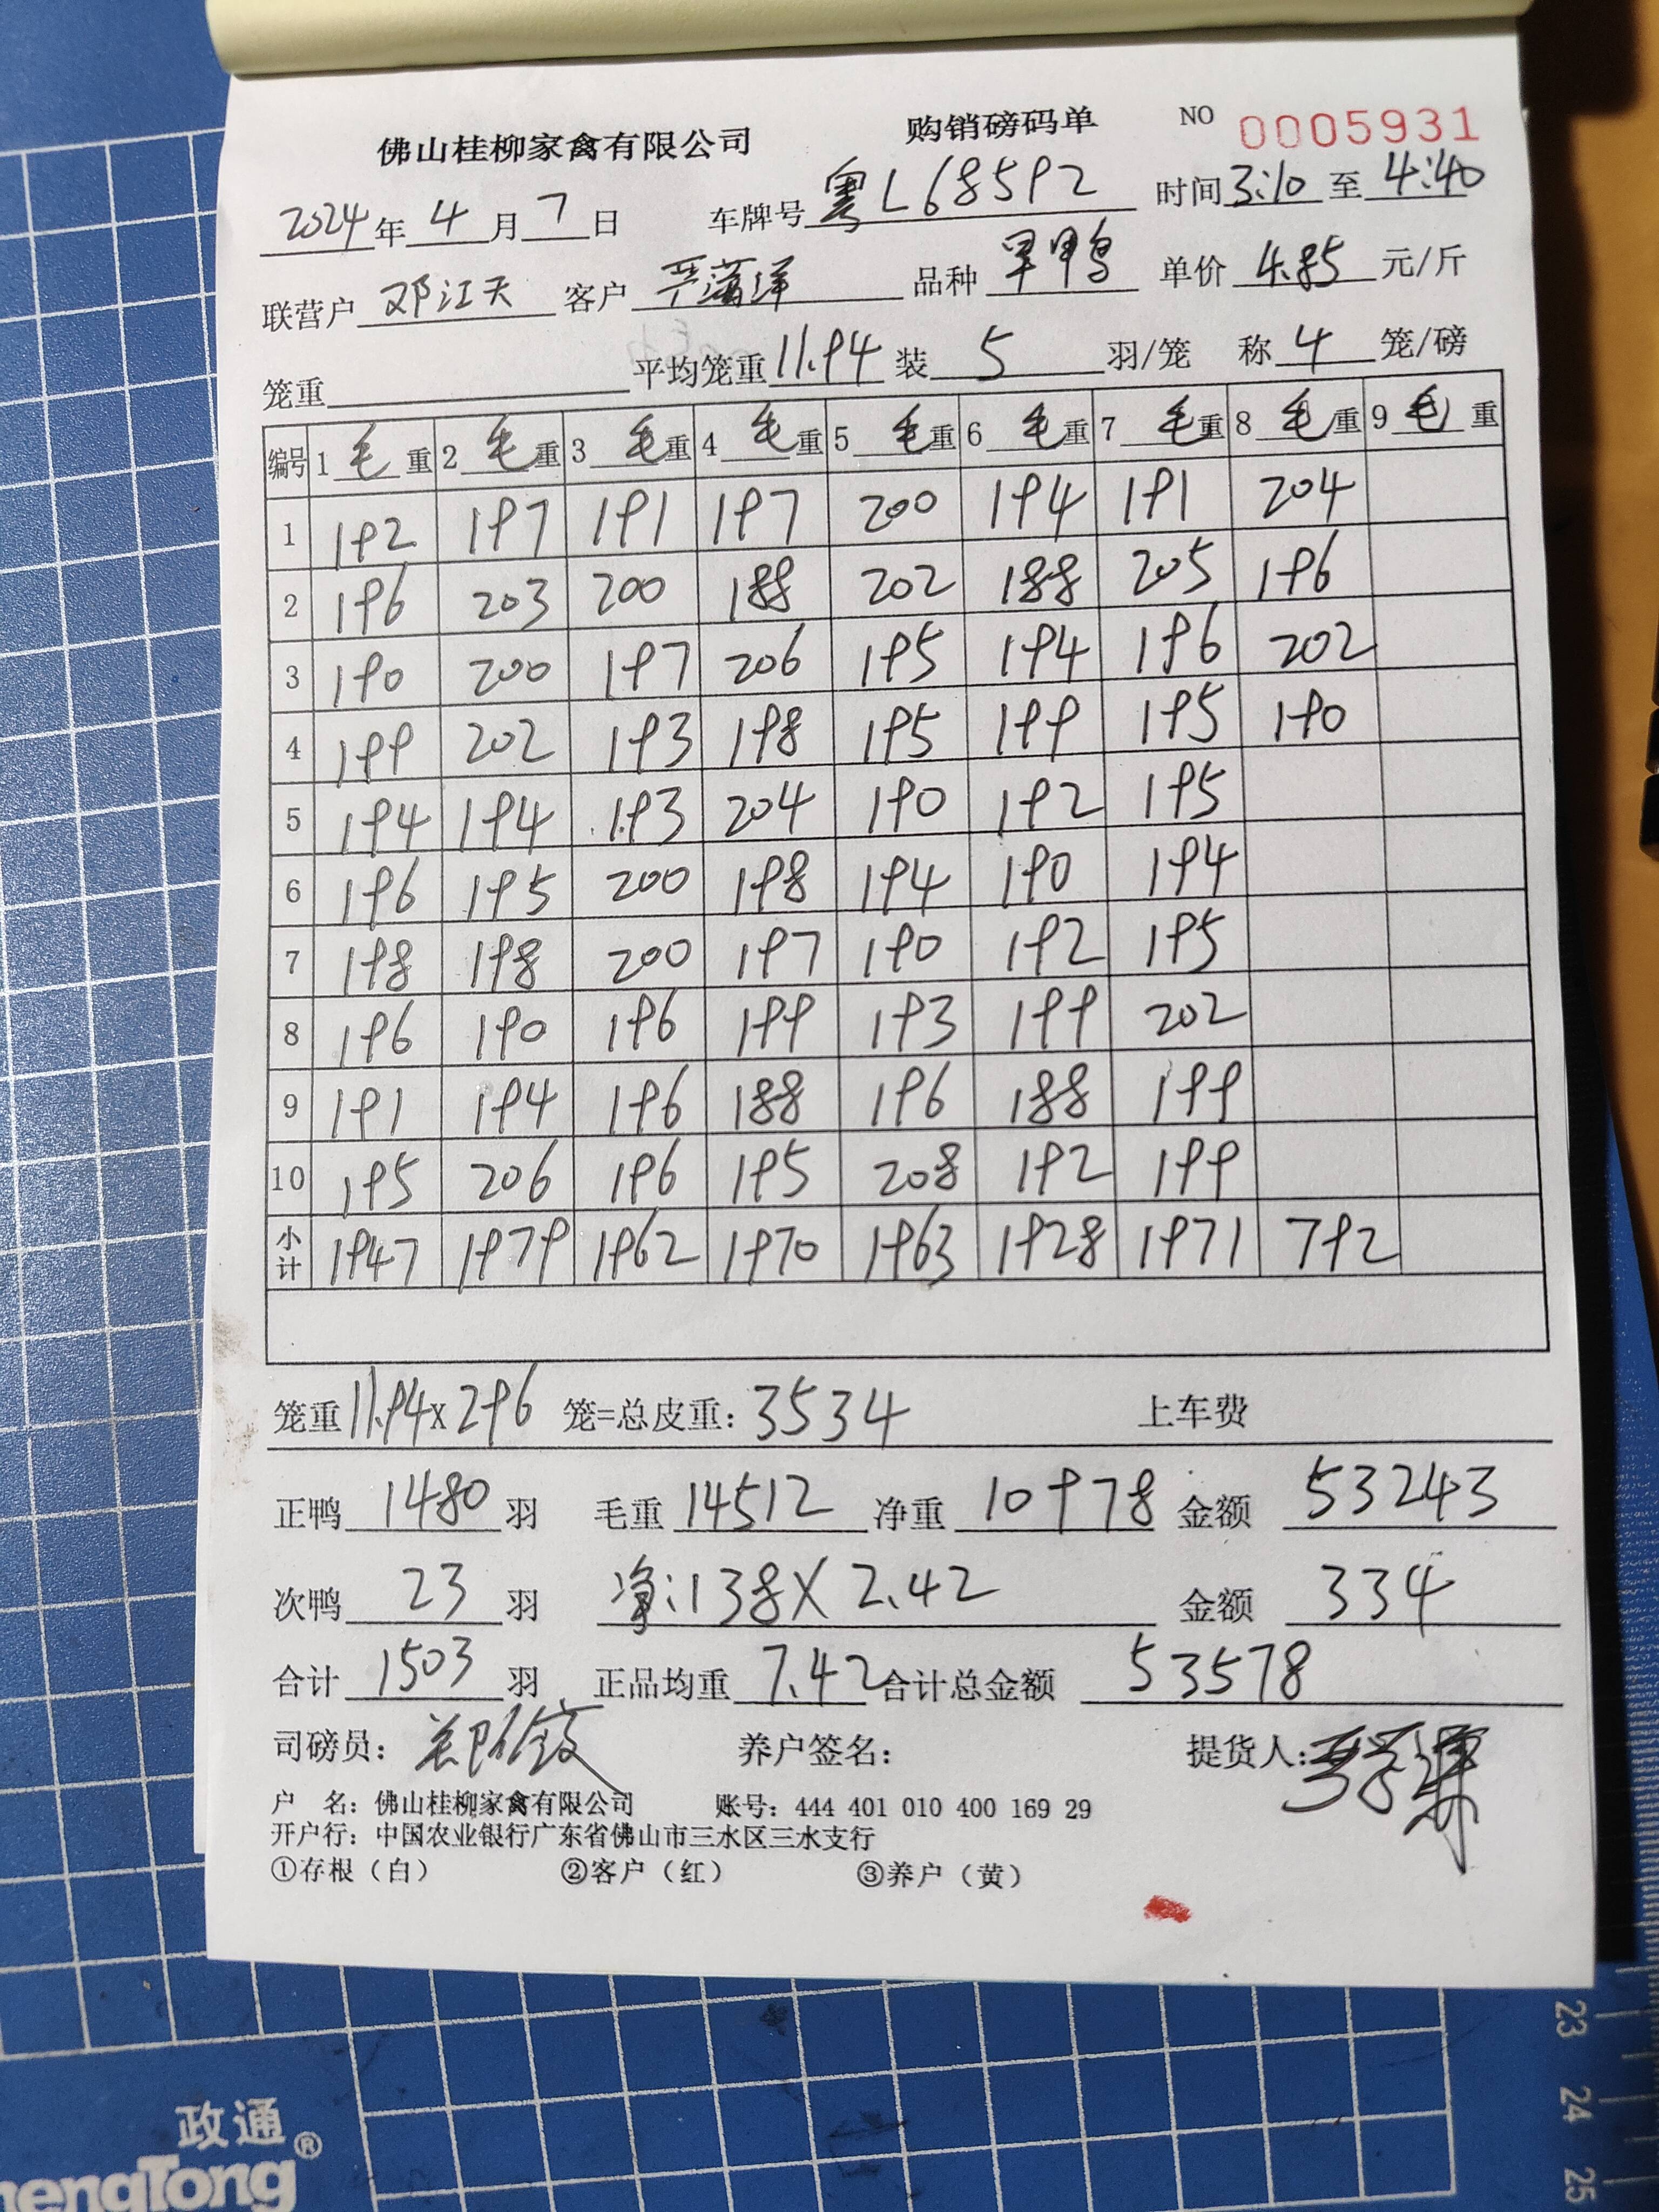 佛山桂柳家禽有限公司 购销磅码单 NO 0005931
2024年4月7日 车牌号粤L68592 时间3:10至4:40
联营户 邓江天 客户 严潇洋 品种 单价 4.85 元/斤
笼重 平均笼重11.94装 5 羽/笼 称 4 笼/磅
编号 1毛重 2毛重 3毛重 4毛重 5毛重 6毛重 7毛重 8毛重 9毛重
1 192 197 191 197 200 194 191 204
2 196 203 200 188 202 188 205 196
3 190 200 197 206 195 194 196 202
4 199 202 193 198 195 199 195 190
5 194 194 193 204 190 192 195
6 196 195 200 198 194 190 194
7 198 198 200 197 190 192 195
8 196 190 196 199 193 199 202
9 191 194 196 188 196 188 199
10 195 206 196 195 208 192 199
小计 1947 1979 1962 1970 1963 1928 1971 792
笼重11.94x296 笼=总皮重:3534 上车费
正鸭 1480 羽 毛重 14512 净重 10978 金额 53243
次鸭 23 羽 净:138X2.42 金额 334
合计 1503 羽 正品均重 7.42 合计总金额 53578
司磅员: 养户签名: 提货人:
户 名:佛山桂柳家禽有限公司 账号:444 401 010 400 169 29
开户行:中国农业银行广东省佛山市三水区三水支行
①存根(白) ②客户(红) ③养户(黄)
23
24
25
政通®
hengTong